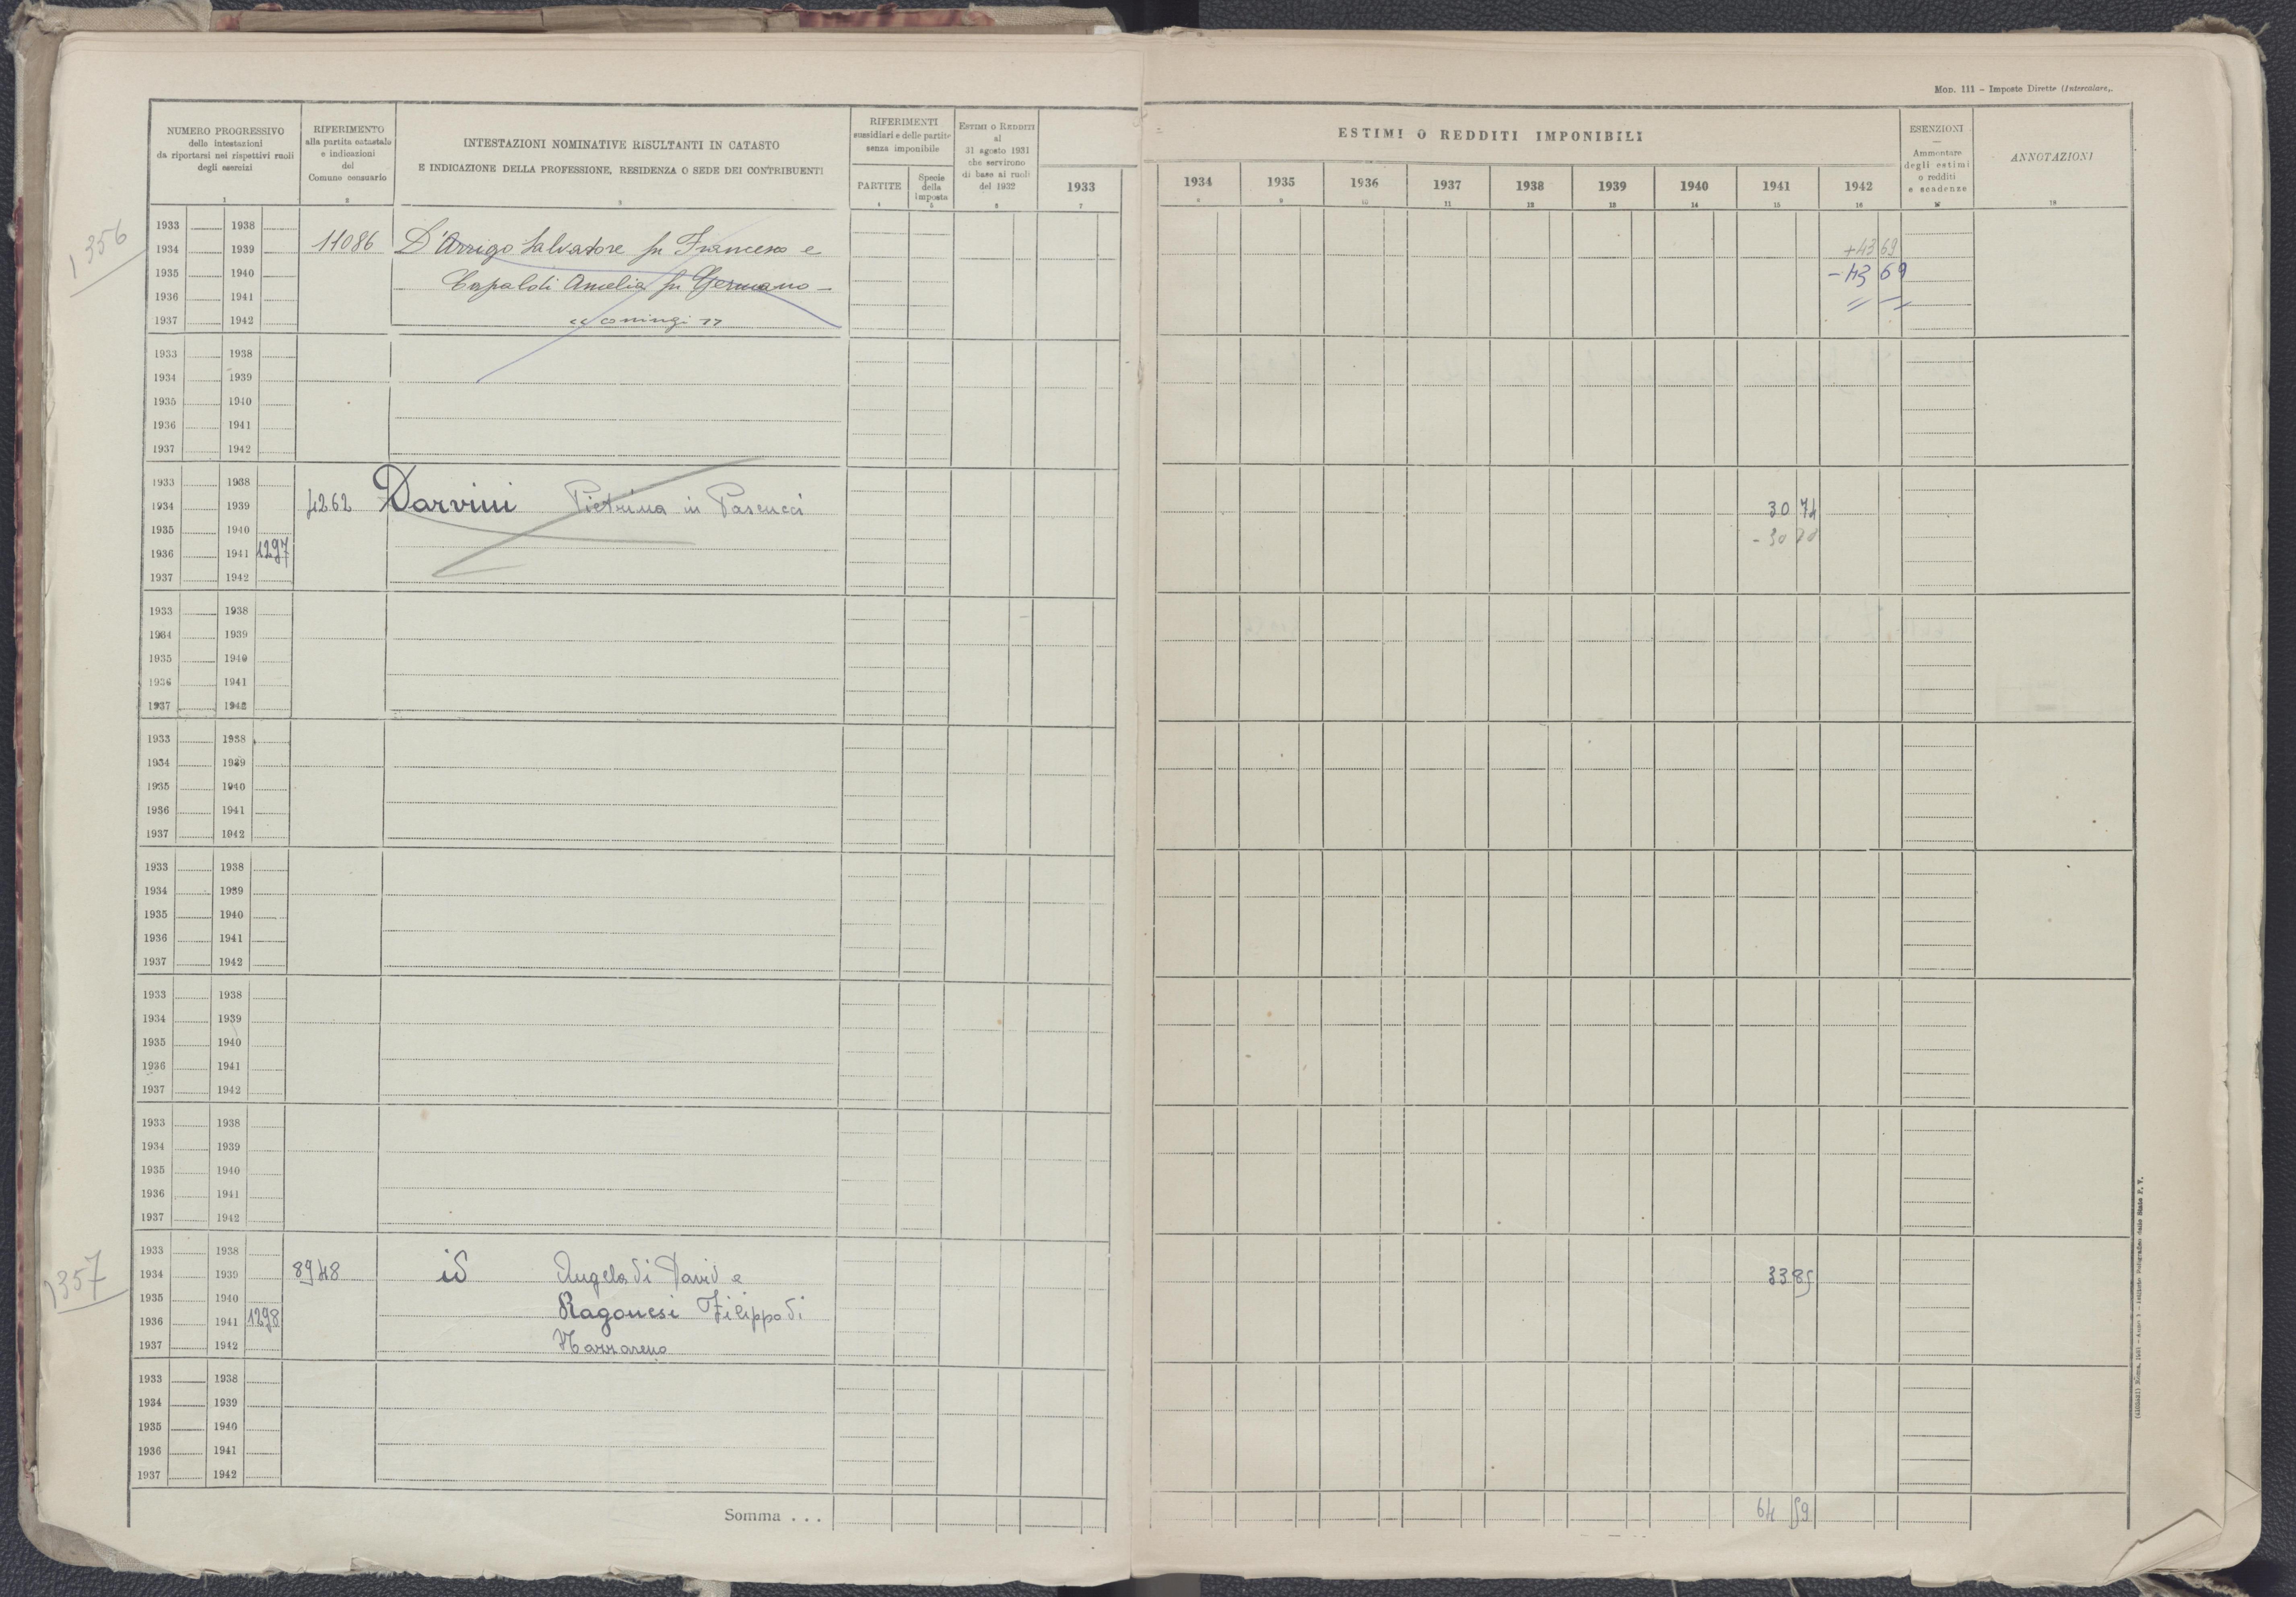 Mod. 111 - Imposte Dirette (Intercalare,.
NUMERO PROGRESSIVO
delle intestazioni
da riportarsi nei rispettivi ruoli
degli esercizi
1
RIFERIMENTO
alla partita catastale
e indicazioni
del
Comune censuario
2
INTESTAZIONI NOMINATIVE RISULTANTI IN CATASTO
E INDICAZIONE DELLA PROFESSIONE, RESIDENZA O SEDE DEI CONTRIBUENTI
3
RIFERIMENTI
sussidiari e delle partite
senza imponibile
PARTITE
4
Specie
della
imposta
5
Estimi o Redditi
al
31 agosto 1931
che servirono
di base ai ruoli
del 1932
6
1933
7
ESTIMI O REDDITI IMPONIBILI
1934 1935 1936 1937 1938 1939 1940 1941 1942
8 9 10 11 12 13 14 15 16
ESENZIONI
Ammontare
degli estimi
o redditi
e scadenze
17
ANNOTAZIONI
18
1356
1933 1938
1934 1939 11086 D'Arrigo Salvatore fu Francesco e +43 69
1935 1940 Capaldi Amelia fu Germano - -43 69
1936 1941
1937 1942 "coniugi"
1933 1938
1934 1939
1935 1940
1936 1941
1937 1942
1933 1938
1934 1939 4262 Darvini Pietrina in Pascucci 30 74
1935 1940 - 30 74
1936 1941 1297
1937 1942
1933 1938
1934 1939
1935 1940
1936 1941
1937 1942
1933 1938
1934 1939
1935 1940
1936 1941
1937 1942
1933 1938
1934 1939
1935 1940
1936 1941
1937 1942
1933 1938
1934 1939
1935 1940
1936 1941
1937 1942
1933 1938
1934 1939
1935 1940
1936 1941
1937 1942
1357
1933 1938
1934 1939 8948 id Angela di David e 33 85
1935 1940
1936 1941 1298 Ragonesi Filippo di
1937 1942 Nazzareno
1933 1938
1934 1939
1935 1940
1936 1941
1937 1942
Somma . . . 64 59